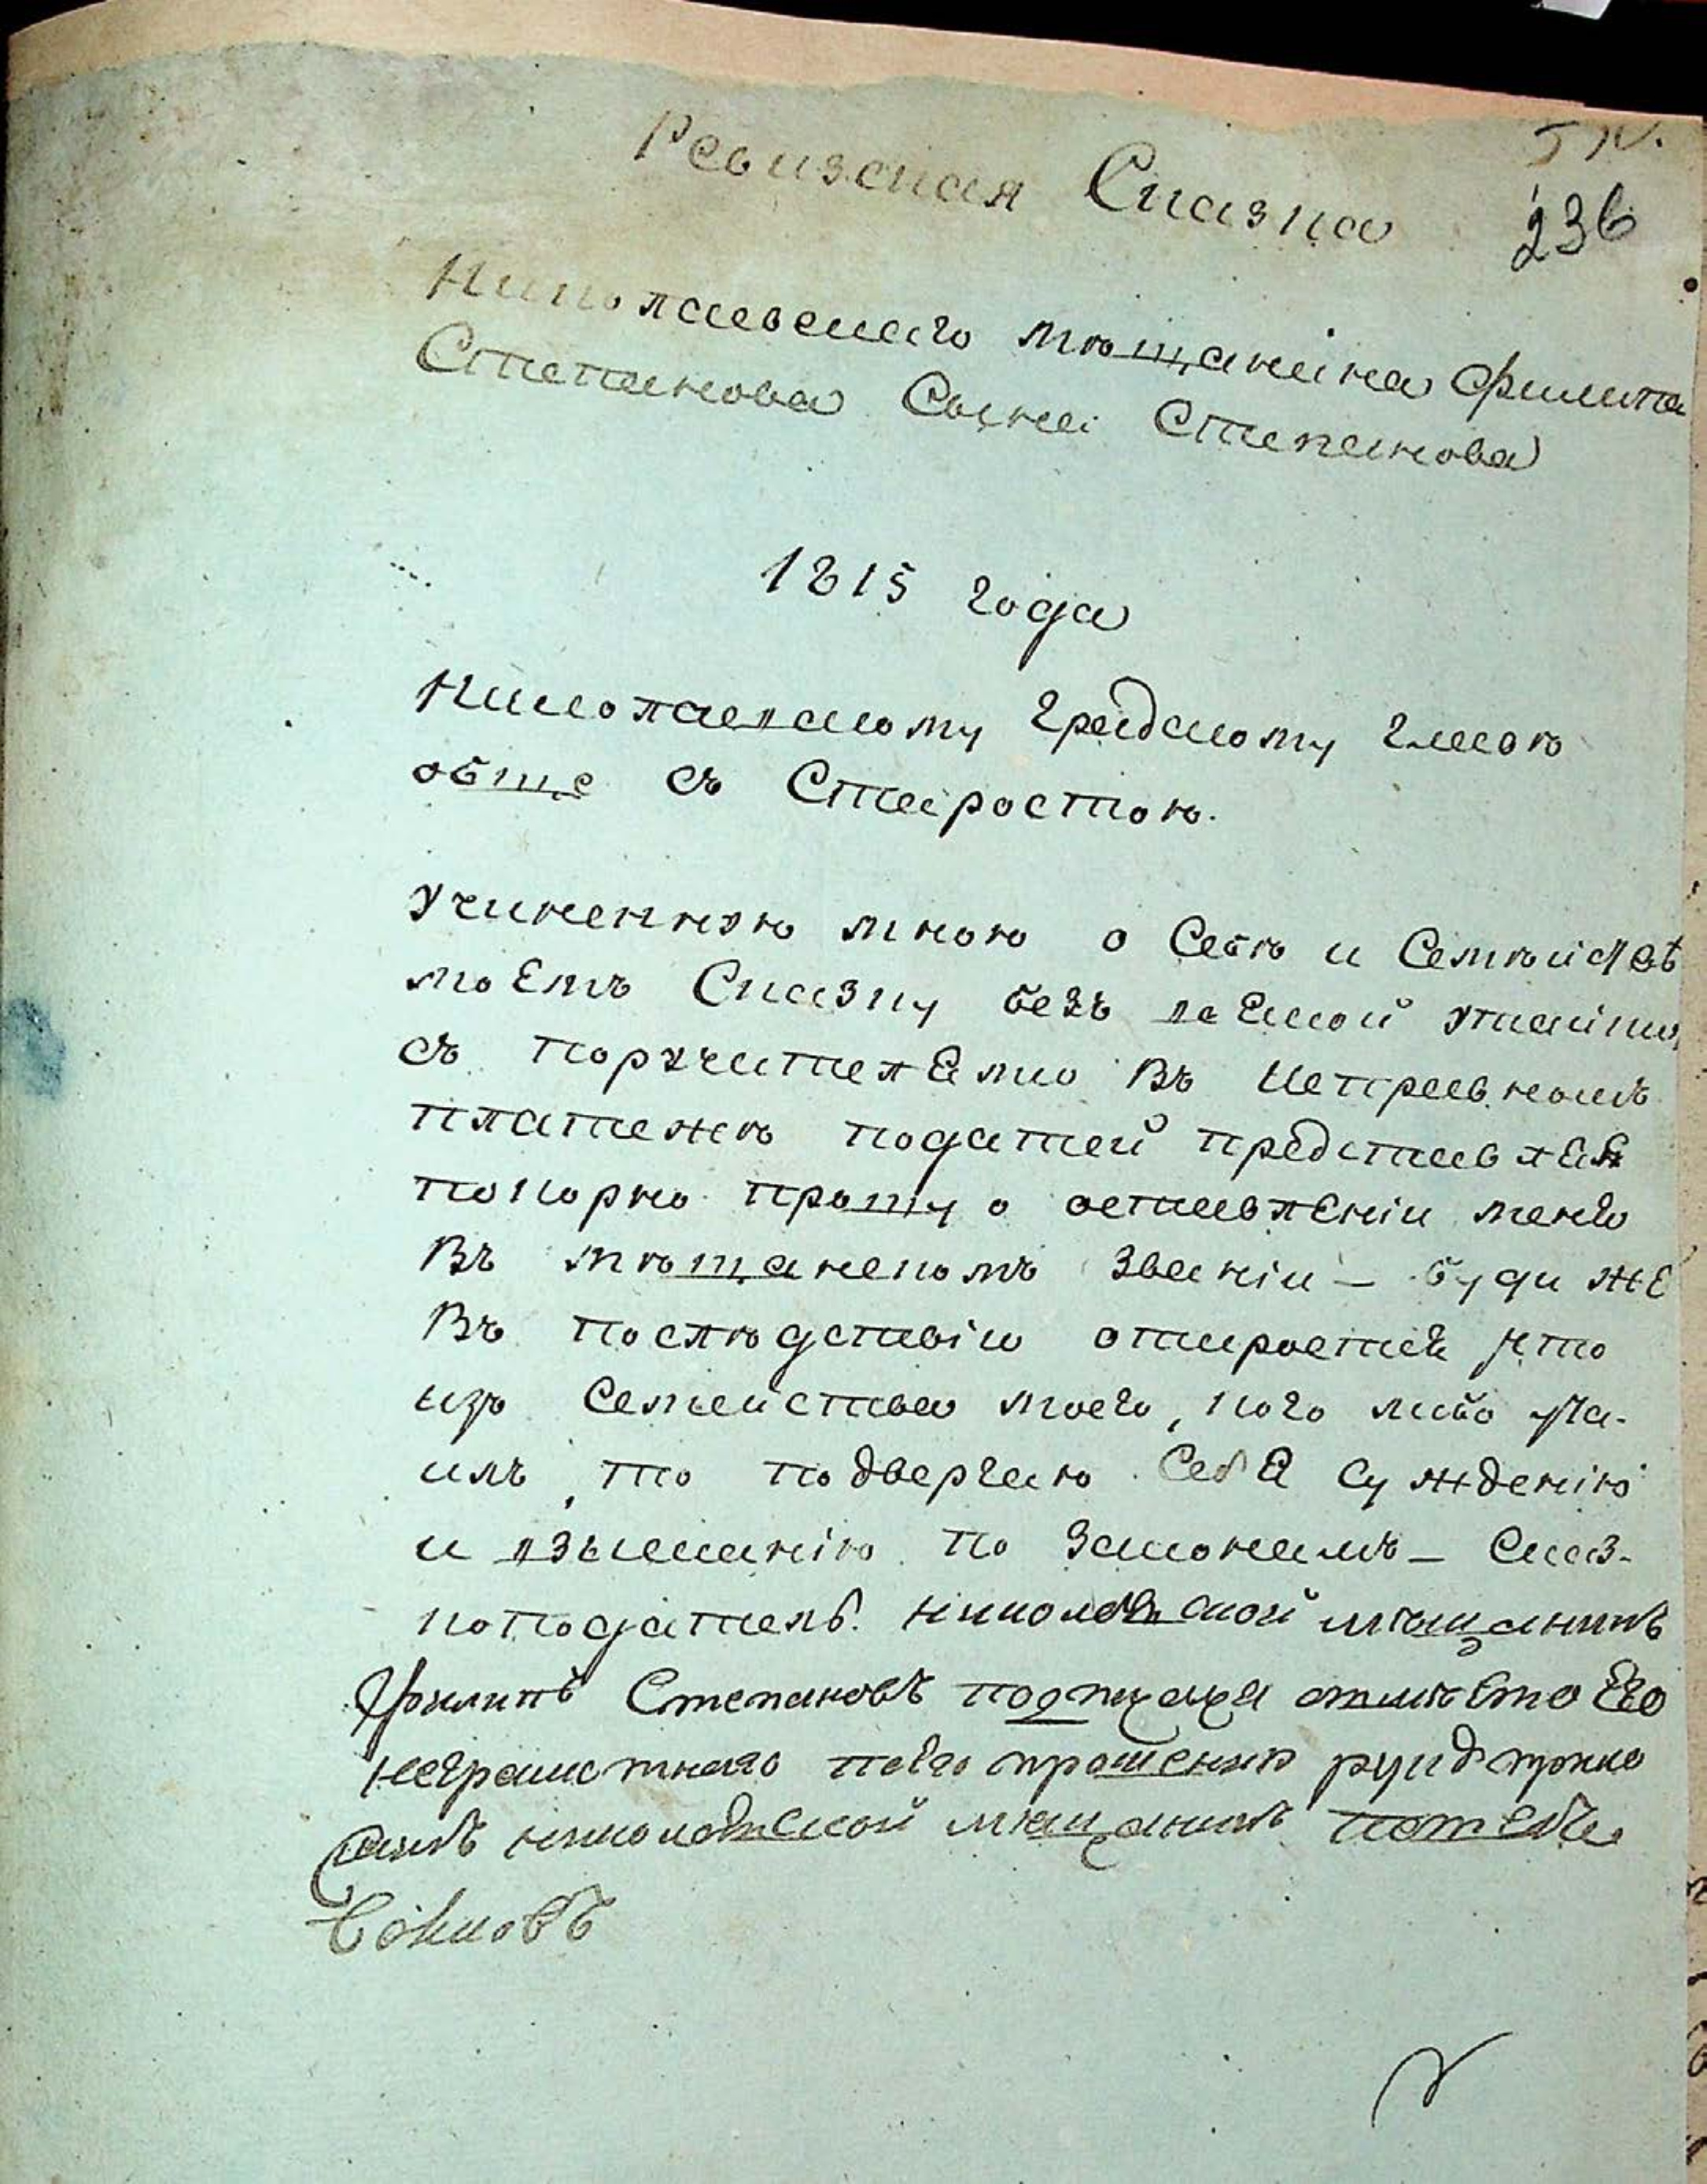 Ревизская Сказка
236
Николаевскаго мѣщанина Филипа
Степанова Сына Степанова
1815 года
Николаевскому градскому главѣ
обще съ Старостою.
Учиненную мною о Себѣ и Семѣйствѣ
моемъ Сказку безъ всякой утайки,
съ поручителями въ исправномъ
платежѣ податей представляя
покорно прошу о оставленіи меня
въ мѣщанскомъ званіи – буди же
въ послѣдствіи откроется что
изъ Семейства моего, кого либо ута-
илъ, то подвергаю Себя сужденію
и взысканію по законамъ – Сказ-
коподатель. николаевской мѣщанинъ
Филипъ Степановъ
неграмотнаго по его прошению руку прило
николаевской мѣщанинъ